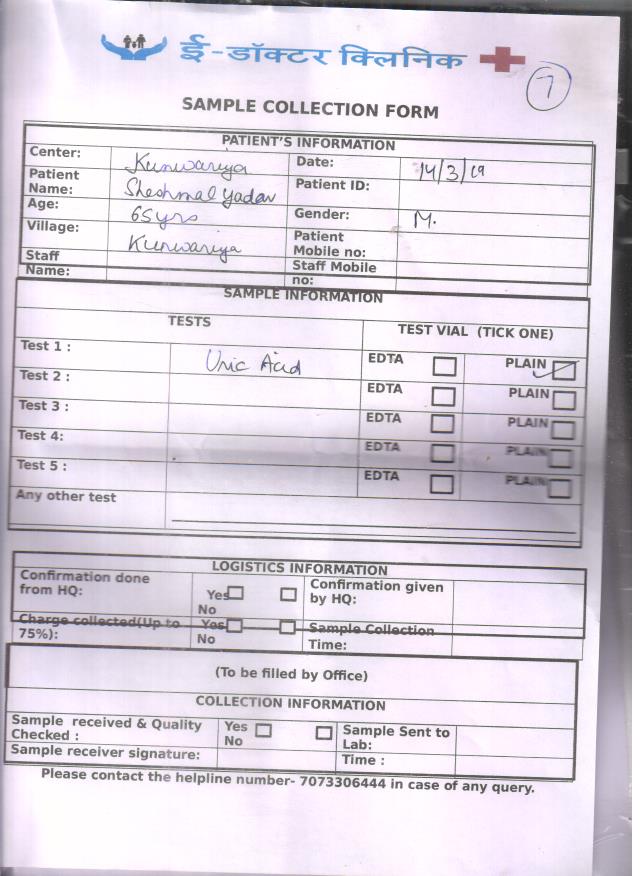 ई-डॉक्टर क्लिनिक
7
SAMPLE COLLECTION FORM
PATIENT'S INFORMATION
Center: Kunwariya Date: 14/3/19
Patient Name: Sheshmal Yadav Patient ID:
Age: 65yrs Gender: M.
Village: Kunwariya Patient Mobile no:
Staff Name: Staff Mobile no:
SAMPLE INFORMATION
TESTS TEST VIAL (TICK ONE)
Test 1 : Uric Acid EDTA PLAIN
Test 2 : EDTA PLAIN
Test 3 : EDTA PLAIN
Test 4: EDTA PLAIN
Test 5 : EDTA PLAIN
Any other test
LOGISTICS INFORMATION
Confirmation done from HQ: Yes No Confirmation given by HQ:
Charge collected(Up to 75%): Yes No Sample Collection Time:
(To be filled by Office)
COLLECTION INFORMATION
Sample received & Quality Checked : Yes No Sample Sent to Lab:
Sample receiver signature: Time :
Please contact the helpline number- 7073306444 in case of any query.